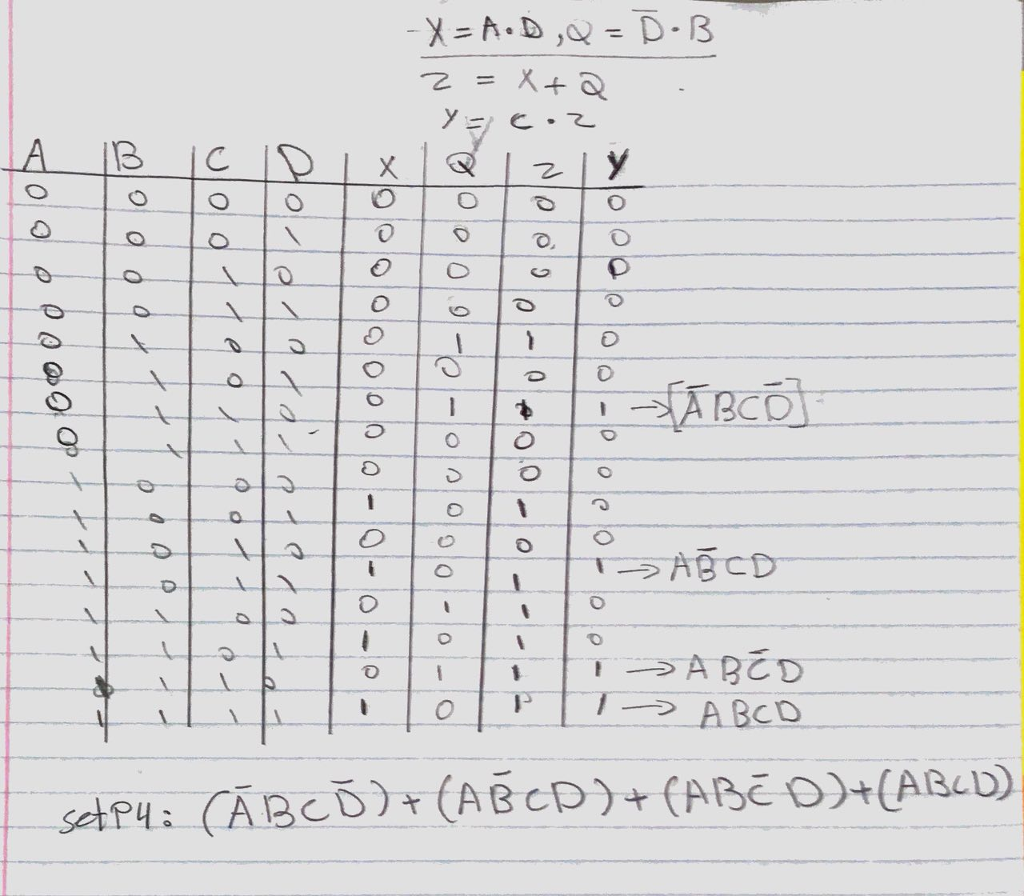 X = A·D , Q = D̅·B
Z = X + Q
Y = C · Z
A B C D X Q Z Y
0 0 0 0 0 0 0 0
0 0 0 1 0 0 0 0
0 0 1 0 0 0 0 0
0 0 1 1 0 0 0 0
0 1 0 0 0 1 1 0
0 1 0 1 0 0 0 0
0 1 1 0 0 1 1 1 → [A̅BCD̅]
0 1 1 1 0 0 0 0
1 0 0 0 0 0 0 0
1 0 0 1 1 0 1 0
1 0 1 0 0 0 0 0
1 0 1 1 1 0 1 1 → AB̅CD
1 1 0 0 0 1 1 0
1 1 0 1 1 0 1 0
1 1 1 0 0 1 1 1 → ABC̅D
1 1 1 1 1 0 1 1 → ABCD
setP4: (A̅BCD̅) + (AB̅CD) + (ABC̅D) + (ABCD)